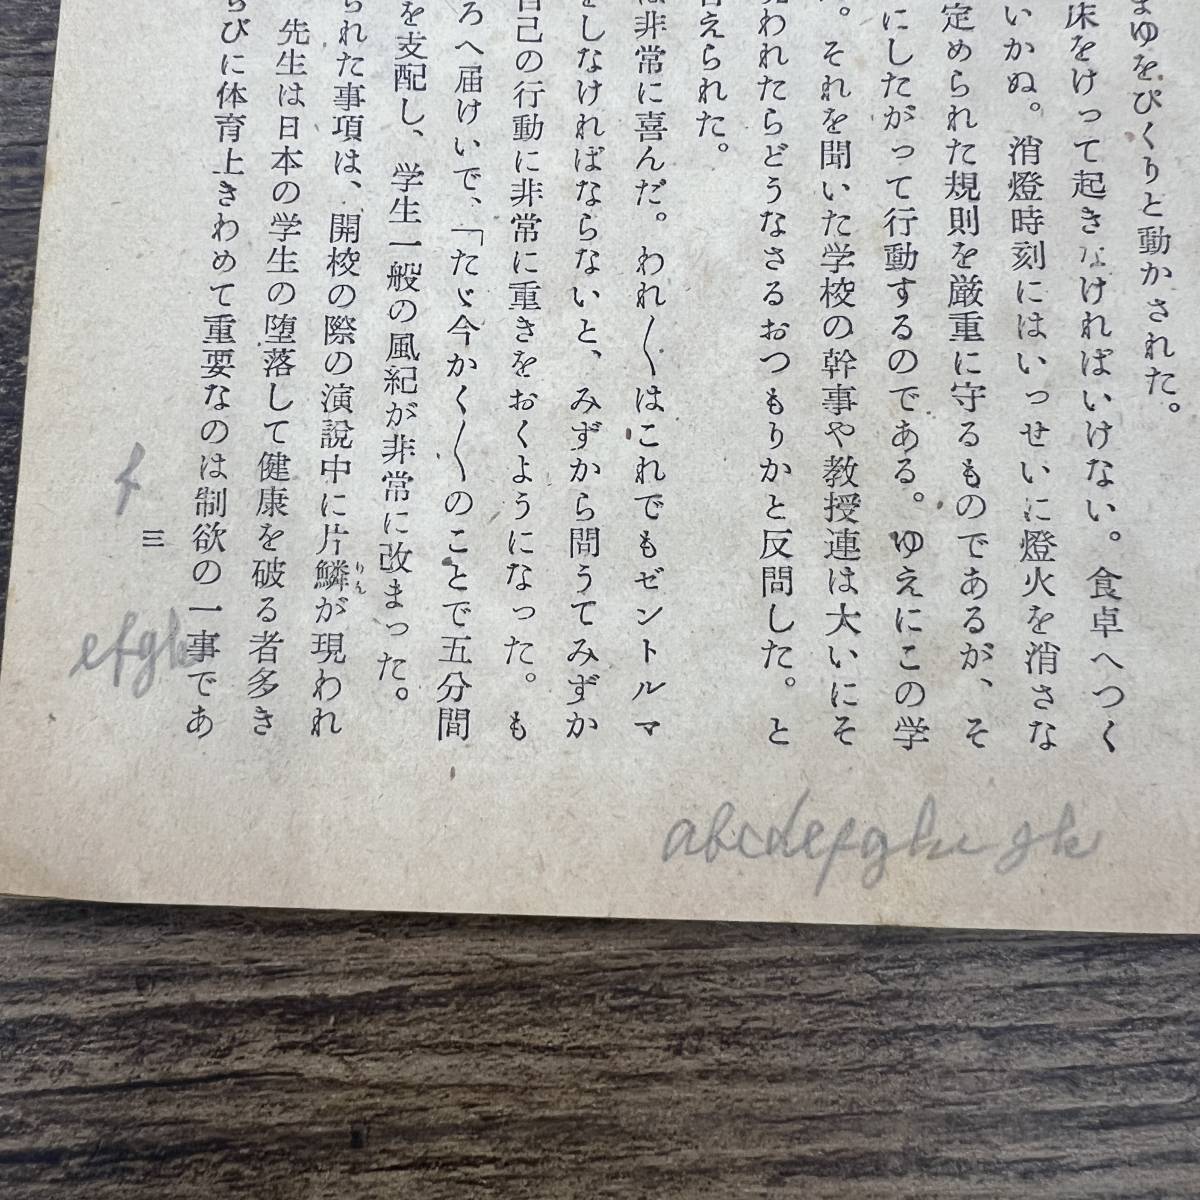 まゆをぴくりと動かされた。
床をけって起きなければいけない。食卓へつく
いかぬ。消燈時刻にはいっせいに燈火を消さな
定められた規則を厳重に守るものであるが、そ
にしたがって行動するのである。ゆえにこの学
。それを聞いた学校の幹事や教授連は大いにそ
われたらどうなさるおつもりかと反問した。と
答えられた。
は非常に喜んだ。われ〳〵はこれでもゼントルマ
をしなければならないと、みずから問うてみずか
自己の行動に非常に重きをおくようになった。も
ろへ届けいで、「たゞ今かく〳〵のことで五分間
を支配し、学生一般の風紀が非常に改まった。
られた事項は、開校の際の演説中に片鱗りんが現われ
先生は日本の学生の堕落して健康を破る者多き
らびに体育上きわめて重要なのは制欲の一事であ
三
f
efgh
abcdefghi gh